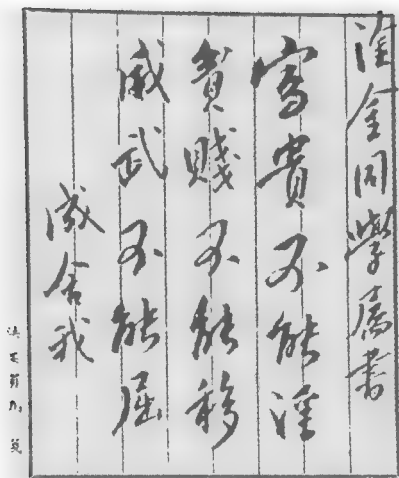 淦金同學屬書
富貴不能淫
貧賤不能移
威武不能屈
成舍我